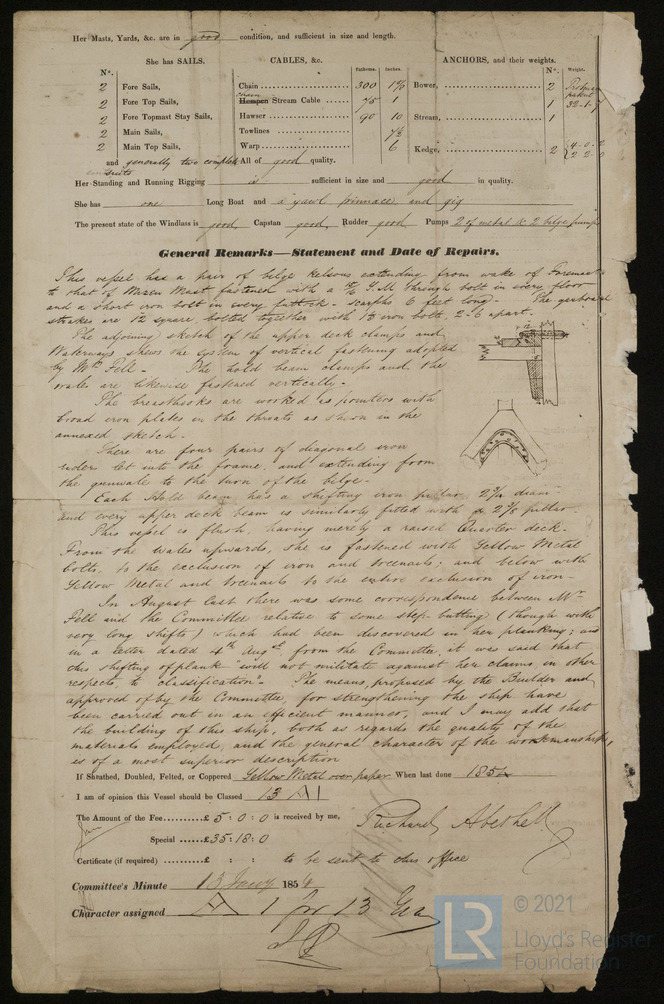 Her Masts, Yards, &c. are in good condition, and sufficient in size and length.
She has SAILS. CABLES, &c. ANCHORS, and their weights.
N°. Fathoms. Inches. N°. Weight.
2 Fore Sails, Chain 300 Bower, 2
2 Fore Top Sails, Chain Hempen Stream Cable 75 1 1 32-1-7
2 Fore Topmast Stay Sails, Hawser 90 10 Stream, 1
2 Main Sails, Towlines
2 Main Top Sails, Warp 6 Kedge, 2 2-2-0
and generally two complete suits All of good quality.
Her Standing and Running Rigging is sufficient in size and good in quality.
She has one Long Boat and a yawl, pinnace, and gig
The present state of the Windlass is good Capstan good, Rudder good Pumps 2 of metal & 2 bilge pumps
General Remarks—Statement and Date of Repairs.
This vessel has a pair of bilge kelsons extending from wake of Foremast
to that of Mizen Mast fastened with a Y.M through bolt in every floor
and a short iron bolt in every futtock - scarphs 6 feet long - The garboard
strakes are 12 square bolted together with iron bolts, 2-6 apart.
The adjoining sketch of the upper deck clamps and
Waterways shews the system of vertical fastening adopted
by Mr. Fell - The hold beam clamps and the
wales are likewise fastened vertically -
The breasthooks are worked as pointers with
broad iron plates in the throats as shewn in the
annexed sketch -
There are four pairs of diagonal iron
riders let into the frame, and extending from
the gunwale to the turn of the bilge -
Each Hold beam has a shifting iron pillar 2¾ diam
and every upper deck beam is similarly fitted with a pillar
This vessel is flush, having merely a raised Quarter deck -
From the wales upwards, she is fastened with Yellow Metal
bolts, to the exclusion of iron and treenails; and below with
Yellow Metal and treenails to the entire exclusion of iron -
In August last there was some correspondence between Mr.
Fell and the Committee relative to some step-butting (though with
very long shifts) which had been discovered in her planking; and
in a letter dated 4th Augst from the Committee, it was said that
this shifting of plank will not militate against her claims, in other
respects, to classification - The means, proposed by the Builder and
approved of by the Committee, for strengthening the ship have
been carried out in an efficient manner; and I may add that
the building of this ship, both as regards the quality of the
materials employed, and the general character of the workmanship,
is of a most superior description
If Sheathed, Doubled, Felted, or Coppered Yellow Metal over paper When last done 1854
I am of opinion this Vessel should be Classed 13 A1
The Amount of the Fee......£ 5 : 0 : 0 is received by me,
Special ......£35 : 18 : 0
Certificate (if required) .........£ : : to be sent to this office
Committee's Minute 13 Jany 1854
Character assigned A 1 for 13 Years
LR
© 2021
Lloyd's Register
Foundation